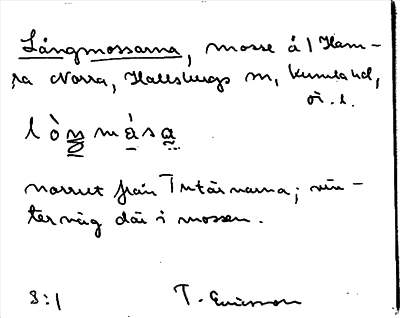 Långmossarna, mosse å 1 Ham-
ra Norra, Hallsbergs sn, Kumla hd,
ör. l.
lòŋmása
norrut från Tritärnarna; vin-
terväg där i mossen.
8:1 T. Ericsson